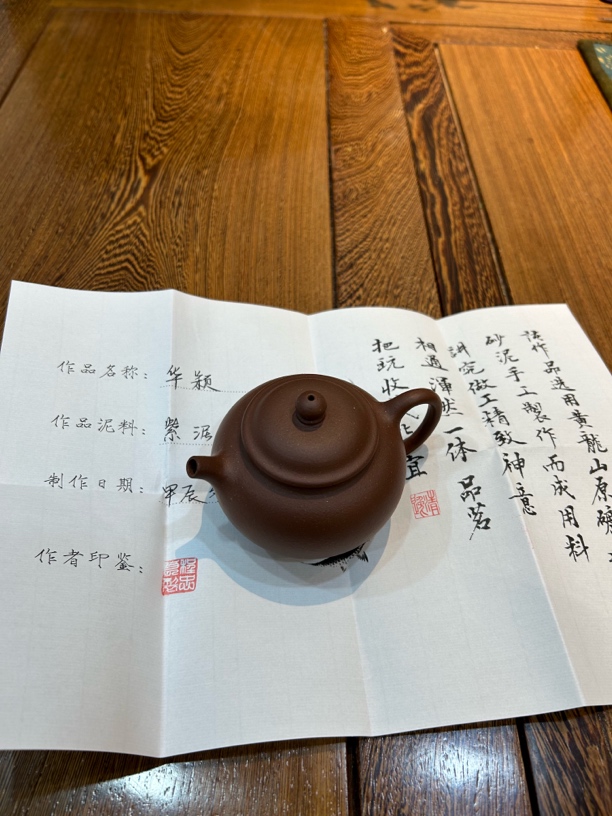 作品名称：华颖
作品泥料：紫泥
制作日期：甲辰
作者印鉴：
该作品选用黄龍山原礦
砂泥手工製作而成用料
講究做工精致神意
相通渾然一体品茗
把玩收
宜